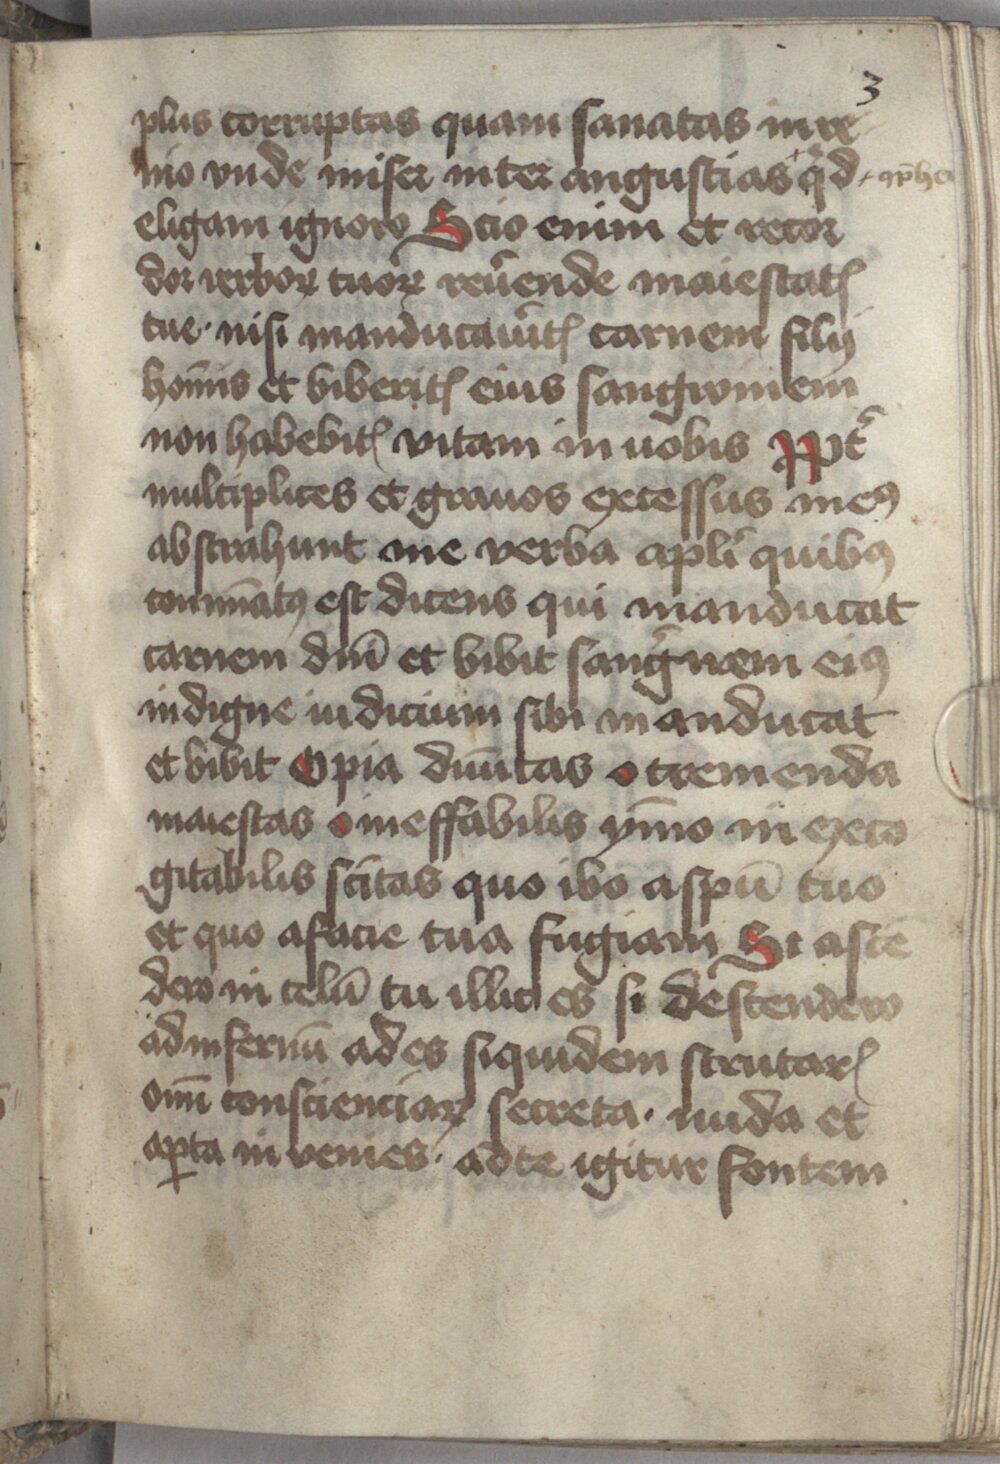 3
plus corruptas quam sanatas inve
nio vnde miser inter angustias qͥd
eligam ignoro Scio enim et recor
dor verboꝝ tuoꝝ reu̾ende maiestatꝭ
tue · nisi manducau̾itꝭ carnem filij
hoīnis et biberitꝭ eius sangwinem
non habebitꝭ vitam in uobis Ppt̾
multiplices et grauos excessus meꝰ
abstrahunt me verba apłi quibꝰ
com̄inatꝰ est dicens qui manducat
carnem dnī et bibit sangͥnem eiꝰ
indigne iudicium sibi manducat
et bibit O pia diuītas o tremenda
maiestas o ineffabilis ym̄o in exco
gitabilis scītas quo ibo a spū tuo
et quo a facie tua fugiam Si ascē
dero in celū tu illic es si descendero
ad infernū ades siquidem scrutarꝭ
om̄ī conscienciaꝝ secreta · nuda et
aꝑta in venies · ad te igitur fontem